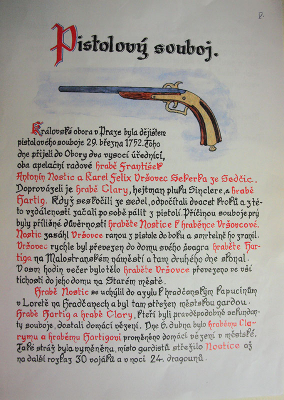 Pistolový souboj.
Královská obora v Praze byla dějištěm
pistolového souboje 29. března 1752. Toho
dne přijeli do Obory dva vysocí úředníci,
oba apelační radové hrabě František
Antonín Nostic a Karel Felix Vršovec Sekerka ze Sedčic.
Doprovázeli je hrabě Clary, hejtman pluku Sinclere, a hrabě
Hartig. Když seskočili ze sedel, odpočítali dvacet kroků a z té-
to vzdálenosti začali po sobě pálit z pistolí. Příčinou souboje prý
byly přílišné důvěrnosti hraběte Nostice k hraběnce Vršovcové.
Nostic zasáhl Vršovce ranou z pistole do boku a smrtelně ho zranil.
Vršovec rychle byl převezen do domu svého švagra hraběte Har-
tiga na Malostranském náměstí a tam druhého dne skonal.
V osm hodin večer bylo tělo hraběte Vršovce převezeno ve vší
tichosti do jeho domu na Starém městě.
Hrabě Nostic se uchýlil do azylu k hradčanským kapucínům
v Loretě na Hradčanech a byl tam střežen městskou gardou.
Hrabě Hartig a hrabě Clary, kteří byli pravděpodobně sekundan-
ty souboje, dostali domácí vězení. Dne 6. dubna bylo hraběmu Cla-
rymu a hraběmu Hartigovi proměněno domácí vězení v městské.
Také stráž byla vyměněna, místo gardistů střežilo Nostice až
na další rozkaz 30 vojáků a v noci 24. dragounů